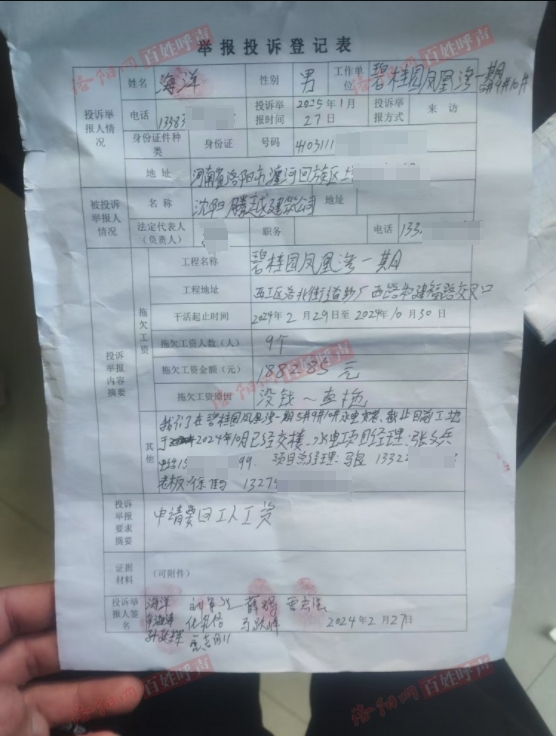 洛阳网百姓呼声
举报投诉登记表
投诉举报人情况
姓名 海洋 性别 男 工作单位 碧桂园凤凰湾一期
电话 13383 投诉举报时间 2025年1月27日 投诉举报方式 来访
身份证件种类 身份证 号码 4103111
地址 河南省洛阳市瀍河回族区
被投诉举报人情况
名称 沈阳腾越建筑公司 地址
法定代表人(负责人) 职务 电话 133
投诉举报内容摘要
拖欠工资
工程名称 碧桂园凤凰湾一期
工程地址 西工区洛北街道 厂西路和建 路交叉口
干活起止时间 2024年2月29日至2024年10月30日
拖欠工资人数(人) 9个
拖欠工资金额(元) 188285元
拖欠工资原因 没钱一直拖
其他
我们在碧桂园凤凰湾一期5号9号10号水电安装、截止日前工地
于2024年10月已经交楼、水电项目经理:张 兵
电话15 99. 项目总经理:马良 1332
老板 徐 1327
投诉举报要求摘要 申请要回工人工资
证据材料 (可附件)
投诉举报人签名
海洋
2024年2月27日
洛阳网百姓呼声
洛阳网百姓呼声
洛阳网百姓呼声